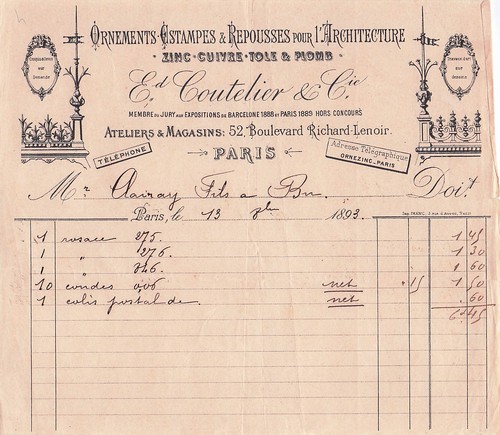 ORNEMENTS ESTAMPÉS & REPOUSSÉS POUR L'ARCHITECTURE
ZINC · CUIVRE · TOLE & PLOMB
Compositions sur Demande
Travaux d'art sur dessins
Ed Coutelier & Cie
MEMBRE DU JURY AUX EXPOSITIONS DE BARCELONE 1888 ET PARIS 1889 HORS CONCOURS
ATELIERS & MAGASINS: 52, Boulevard Richard-Lenoir.
TÉLÉPHONE
PARIS
Adresse Télégraphique
ORNEZINC-PARIS
Mr Clairay Fils a Doit
Paris, le 13 1893.
1 rosace 275. 1 45
1 " 276. 1 30
1 " 346. 1 60
10 coudes 006 net "15 1 50
1 colis postal de. net .60
6 45